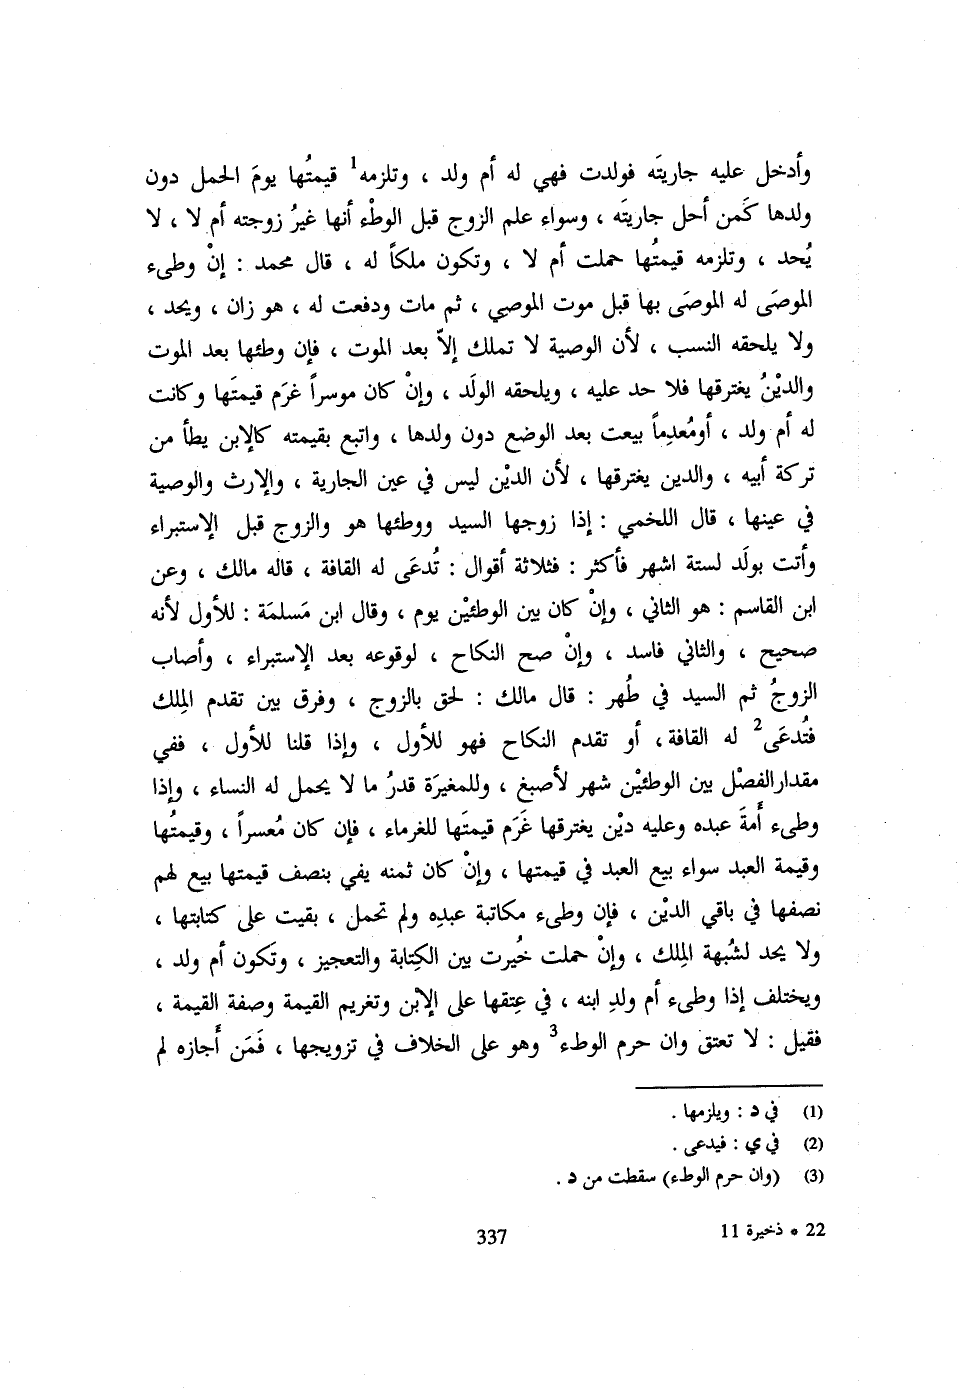 وأدخل عليه جاريتَه فولدت فهي له أم ولد ، وتلزمه1 قيمتُها يومَ الحمل دون
ولدها كَمن أحل جاريتَه ، وسواء علم الزوج قبل الوطْء أنها غيرُ زوجته أم لا ، لا
يُحد ، وتلزمه قيمتُها حملت أم لا ، وتكون ملكاً له ، قال محمد : إنْ وطىء
الموصَى له الموصَى بها قبل موت الموصي ، ثم مات ودفعت له ، هو زان ، ويحد ،
ولا يلحقه النسب ، لأن الوصية لا تملك إلاّ بعد الموت ، فإن وطئها بعد الموت
والديْنُ يغترقها فلا حد عليه ، ويلحقه الولَد ، وإنْ كان موسراً غرَم قيمتَها وكانت
له أم ولد ، أومُعدِماً بيعت بعد الوضع دون ولدها ، واتبع بقيمته كالإبن يطأ من
تركة أبيه ، والدين يغترقها ، لأن الديْن ليس في عين الجارية ، والإرث والوصية
في عينها ، قال اللخمي : إذا زوجها السيد ووطئها هو والزوج قبل الإستبراء
وأتت بولَد لستة اشهر فأكثر : فثلاثة أقوال : تُدعَى له القافة ، قاله مالك ، وعن
ابن القاسم : هو الثاني ، وإنْ كان بين الوطئيْن يوم ، وقال ابن مَسلمَة : للأول لأنه
صحيح ، والثاني فاسد ، وإنْ صح النكاح ، لوقوعه بعد الإستبراء ، وأصاب
الزوجُ ثم السيد في طُهر : قال مالك : لحق بالزوج ، وفرق بين تقدم المِلك
فتُدعَى2 له القافة ، أو تقدم النكاح فهو للأول ، وإذا قلنا للأول ، ففي
مقدارالفصْل بين الوطئيْن شهر لأصبغ ، وللمغيرَة قدرُ ما لا يحمل له النساء ، وإذا
وطىء أَمةَ عبده وعليه ديْن يغترقها غَرَم قيمتَها للغرماء ، فإن كان مُعسراً ، وقيمتُها
وقيمة العبد سواء بيع العبد في قيمتها ، وإنْ كان ثمنه يفي بنصف قيمتها بيع لهم
نصفها في باقي الديْن ، فإن وطىء مكاتبة عبدِه ولم تحمل ، بقيت على كتابتها ،
ولا يحد لشُبهة المِلك ، وإنْ حملت خُيرت بين الكِتابة والتعجيز ، وتَكون أم ولد ،
ويختلف إذا وطىء أم ولدِ ابنه ، في عِتقها على الإبْن وتغريم القيمة وصفة القيمة ،
فقيل : لا تعتق وان حرم الوطء3 وهو على الخلاف في تزويجها ، فَمَن أَجازه لم
(1) في د : ويلزمها .
(2) في ي : فيدعى .
(3) (وان حرم الوطء) سقطت من د .
22 * ذخيرة 11
337